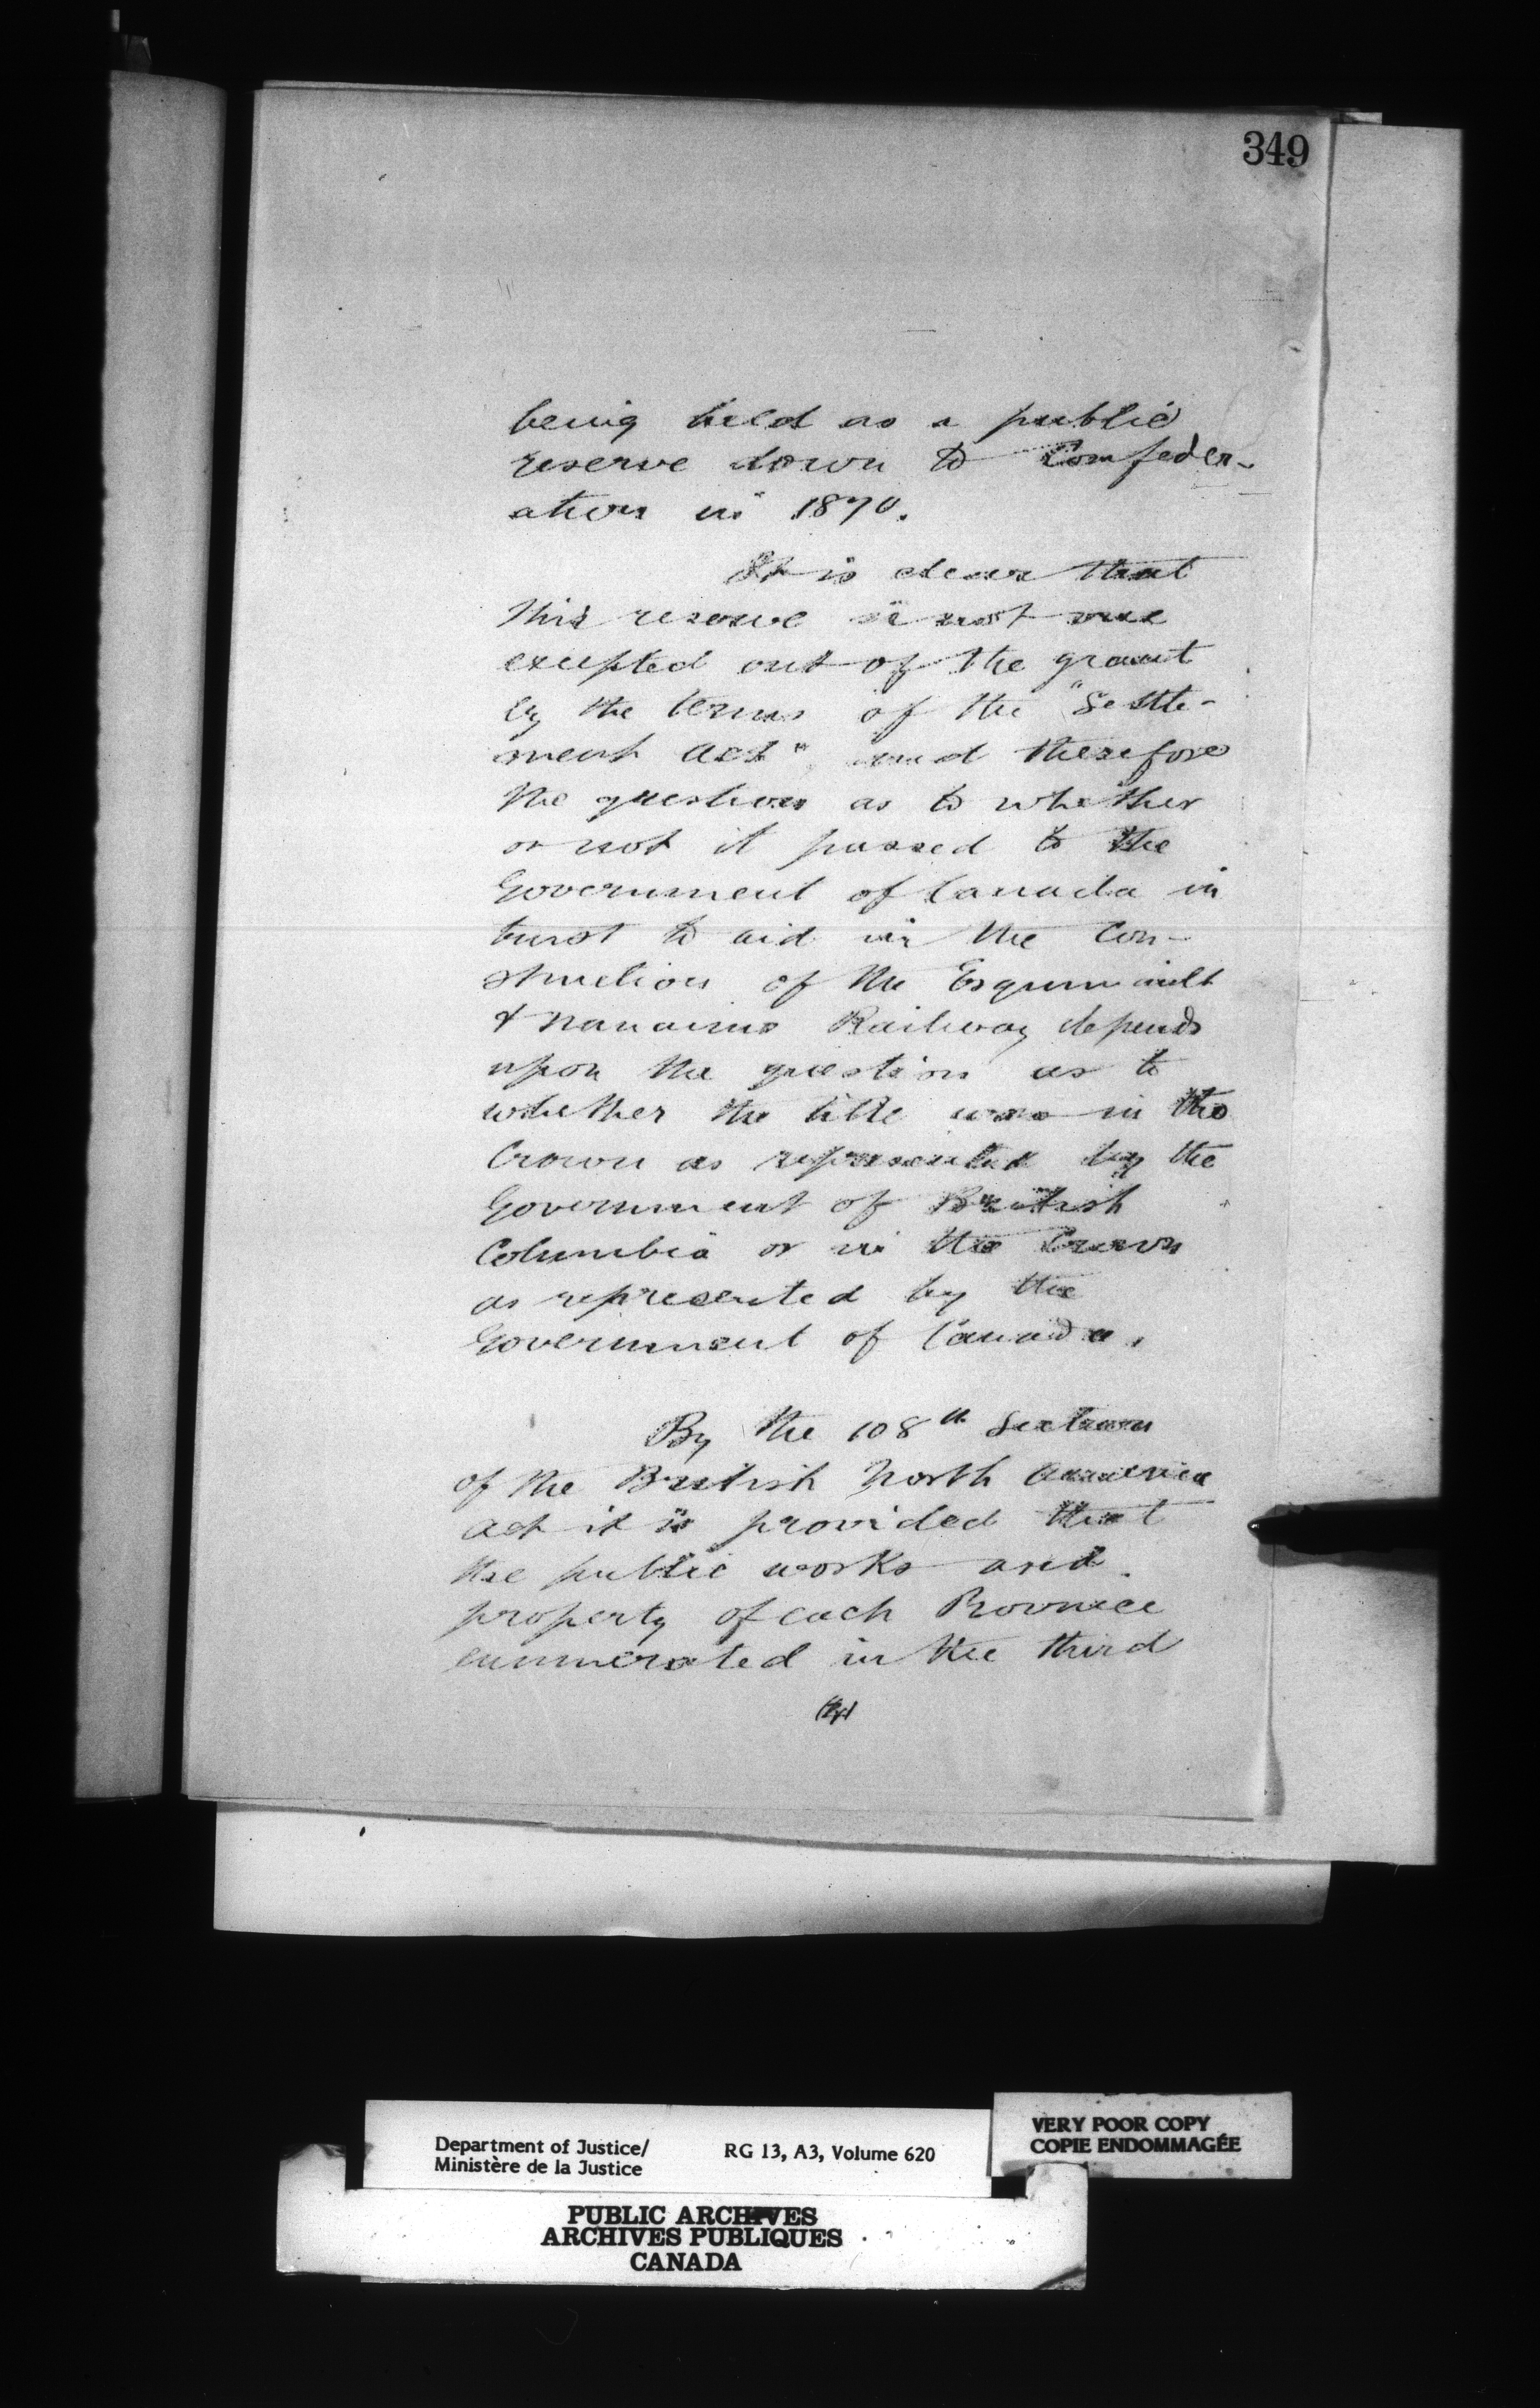 349
being held as a public
reserve down to Confeder-
ation in 1870.
It is clear that
this reserve is not one
excepted out of the grant
by the terms of the "Settle-
ment Act" and therefore
the question as to whether
or not it passed to the
Government of Canada in
trust to aid in the Con-
struction of the Esquimault
& Nanaimo Railway depends
upon the question as to
whether the title was in the
Crown as represented by the
Government of British
Columbia or in the Crown
as represented by the
Government of Canada.
By the 108th Section
of the British North America
Act it is provided that
the public works and
property of each Province
enumerated in the third
Department of Justice/
Ministère de la Justice
RG 13, A3, Volume 620
VERY POOR COPY
COPIE ENDOMMAGÉE
PUBLIC ARCHIVES
ARCHIVES PUBLIQUES
CANADA